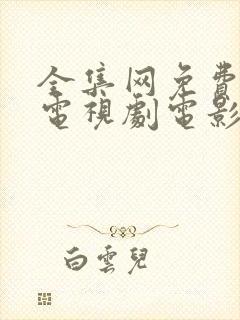 全集网免費
電視劇電影
白雲兒